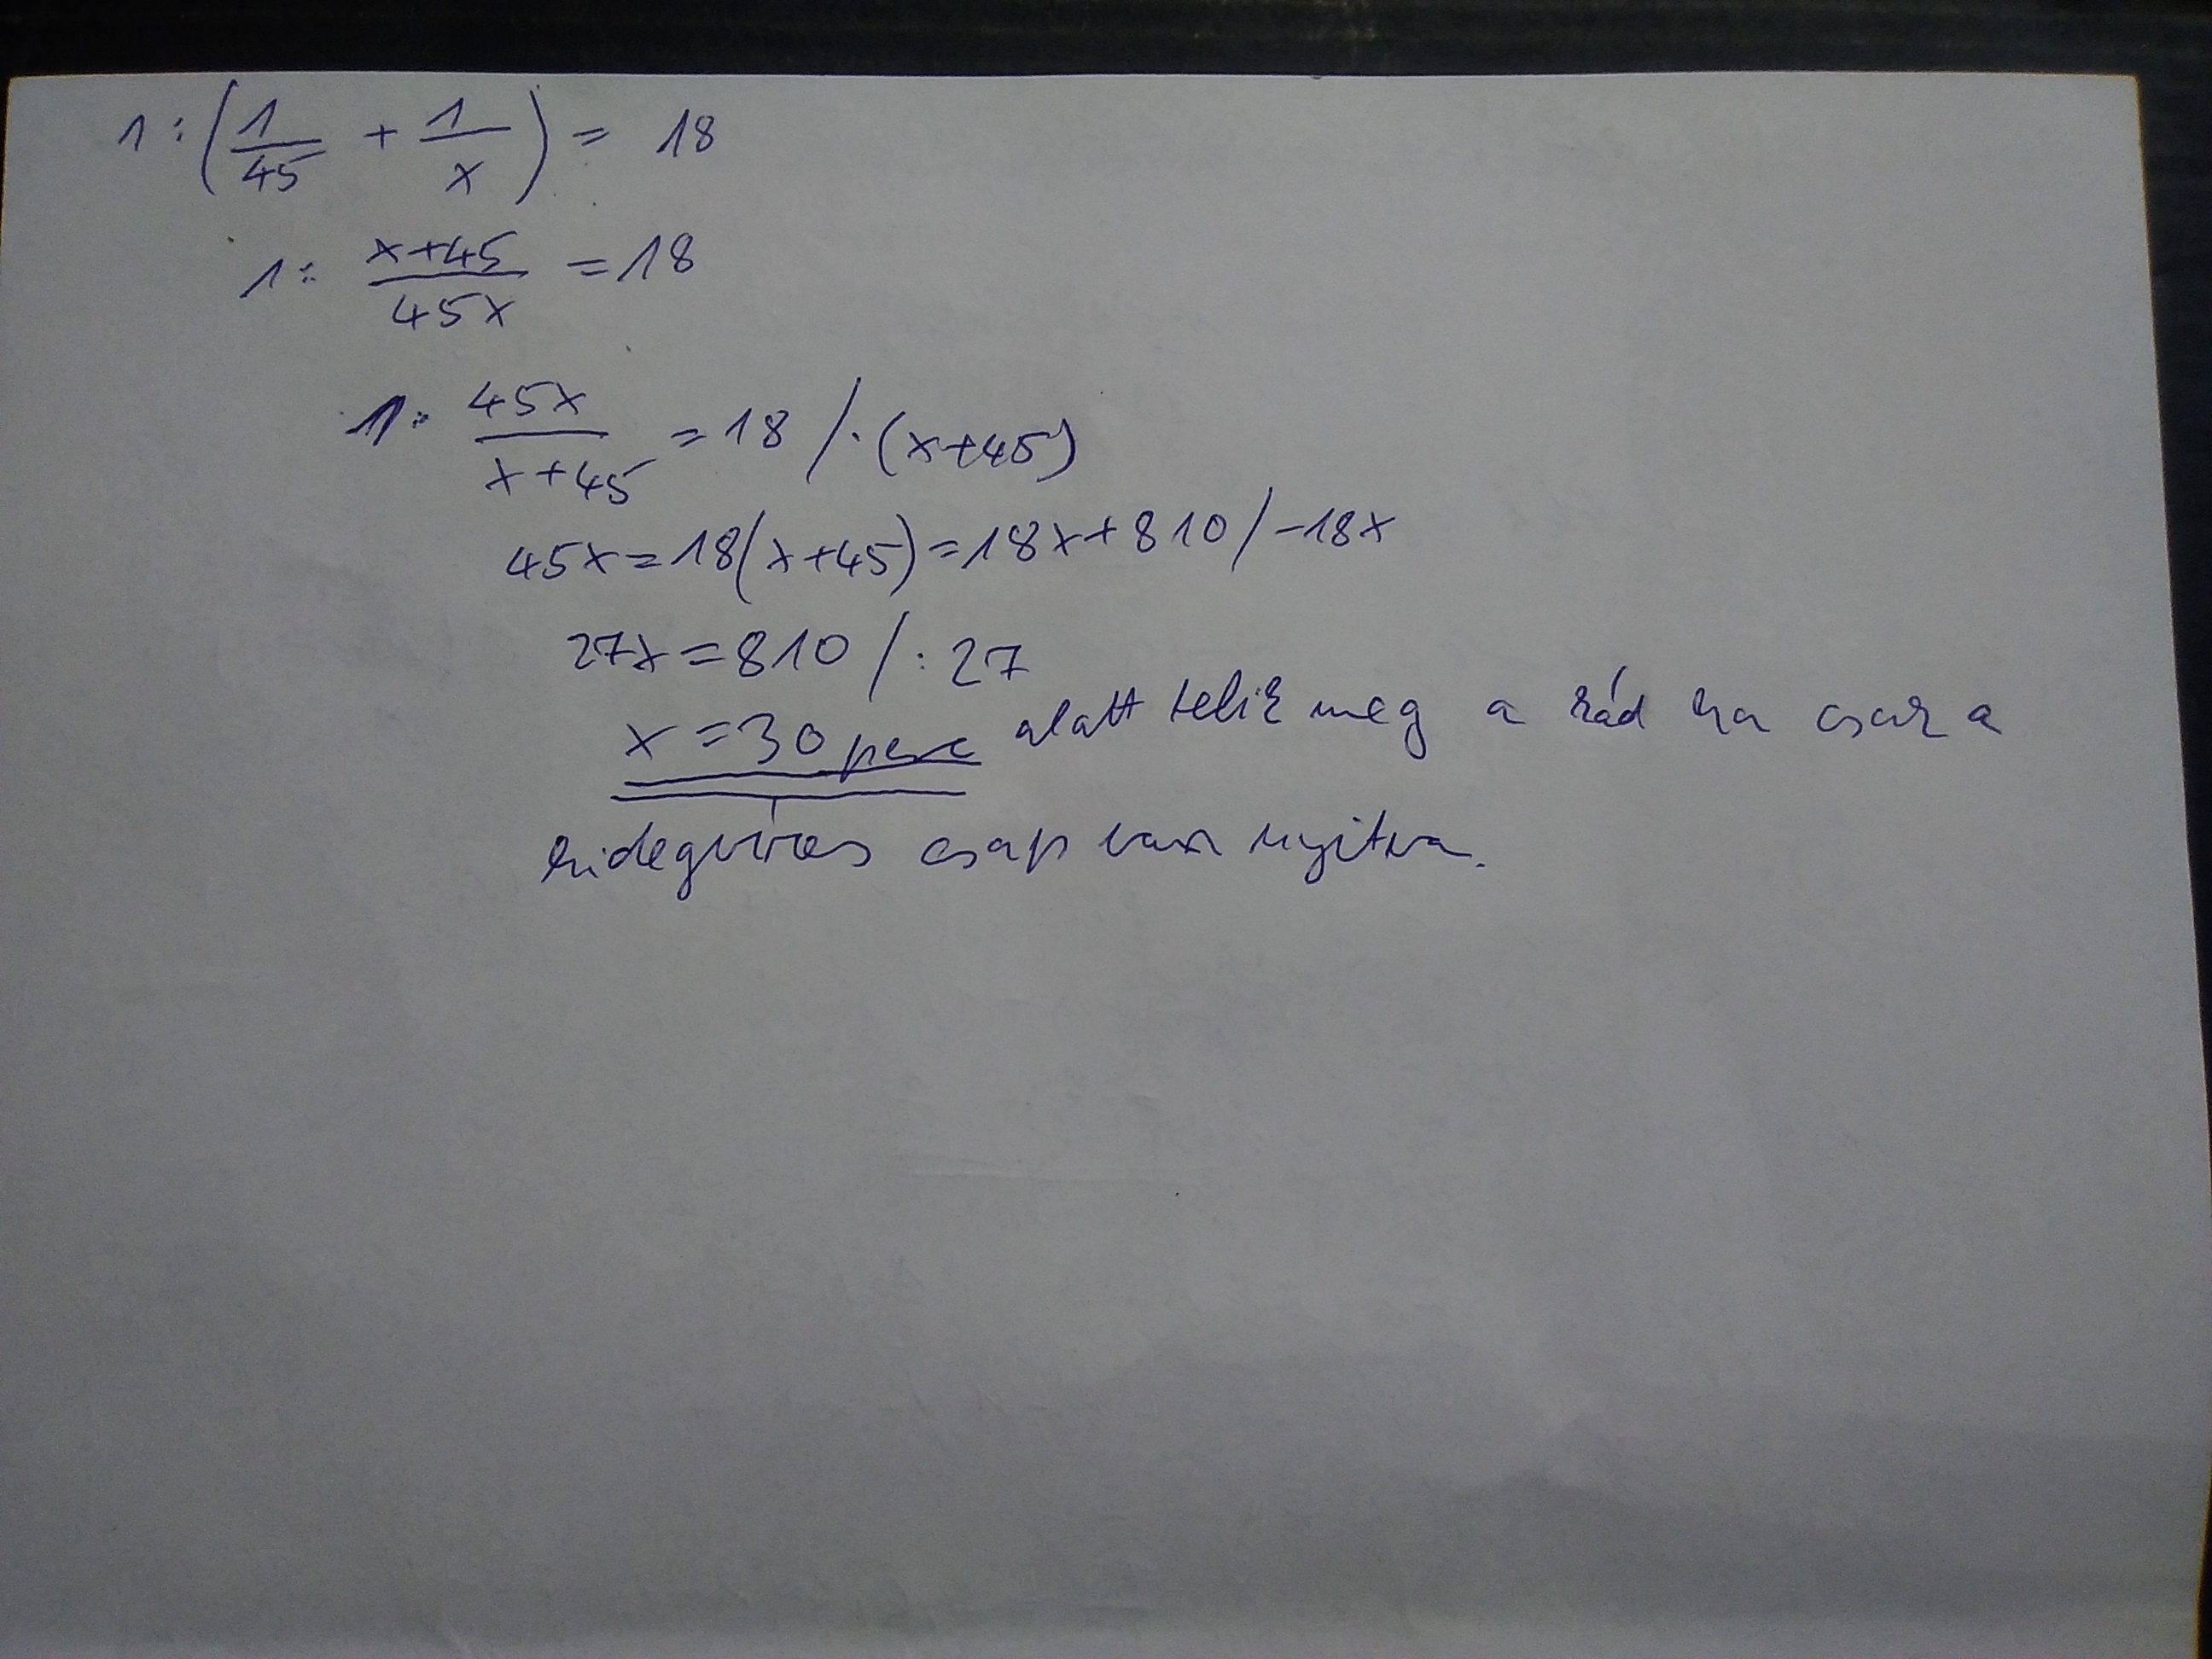 1 : (1/45 + 1/x) = 18
1 : (x+45)/(45x) = 18
1 · 45x/(x+45) = 18 / · (x+45)
45x = 18(x+45) = 18x + 810 / -18x
27x = 810 / : 27
x = 30 perc alatt telik meg a kád ha csak a
hidegvizes csap van nyitva.